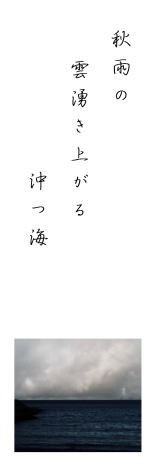 秋雨の
雲湧き上がる
沖つ海